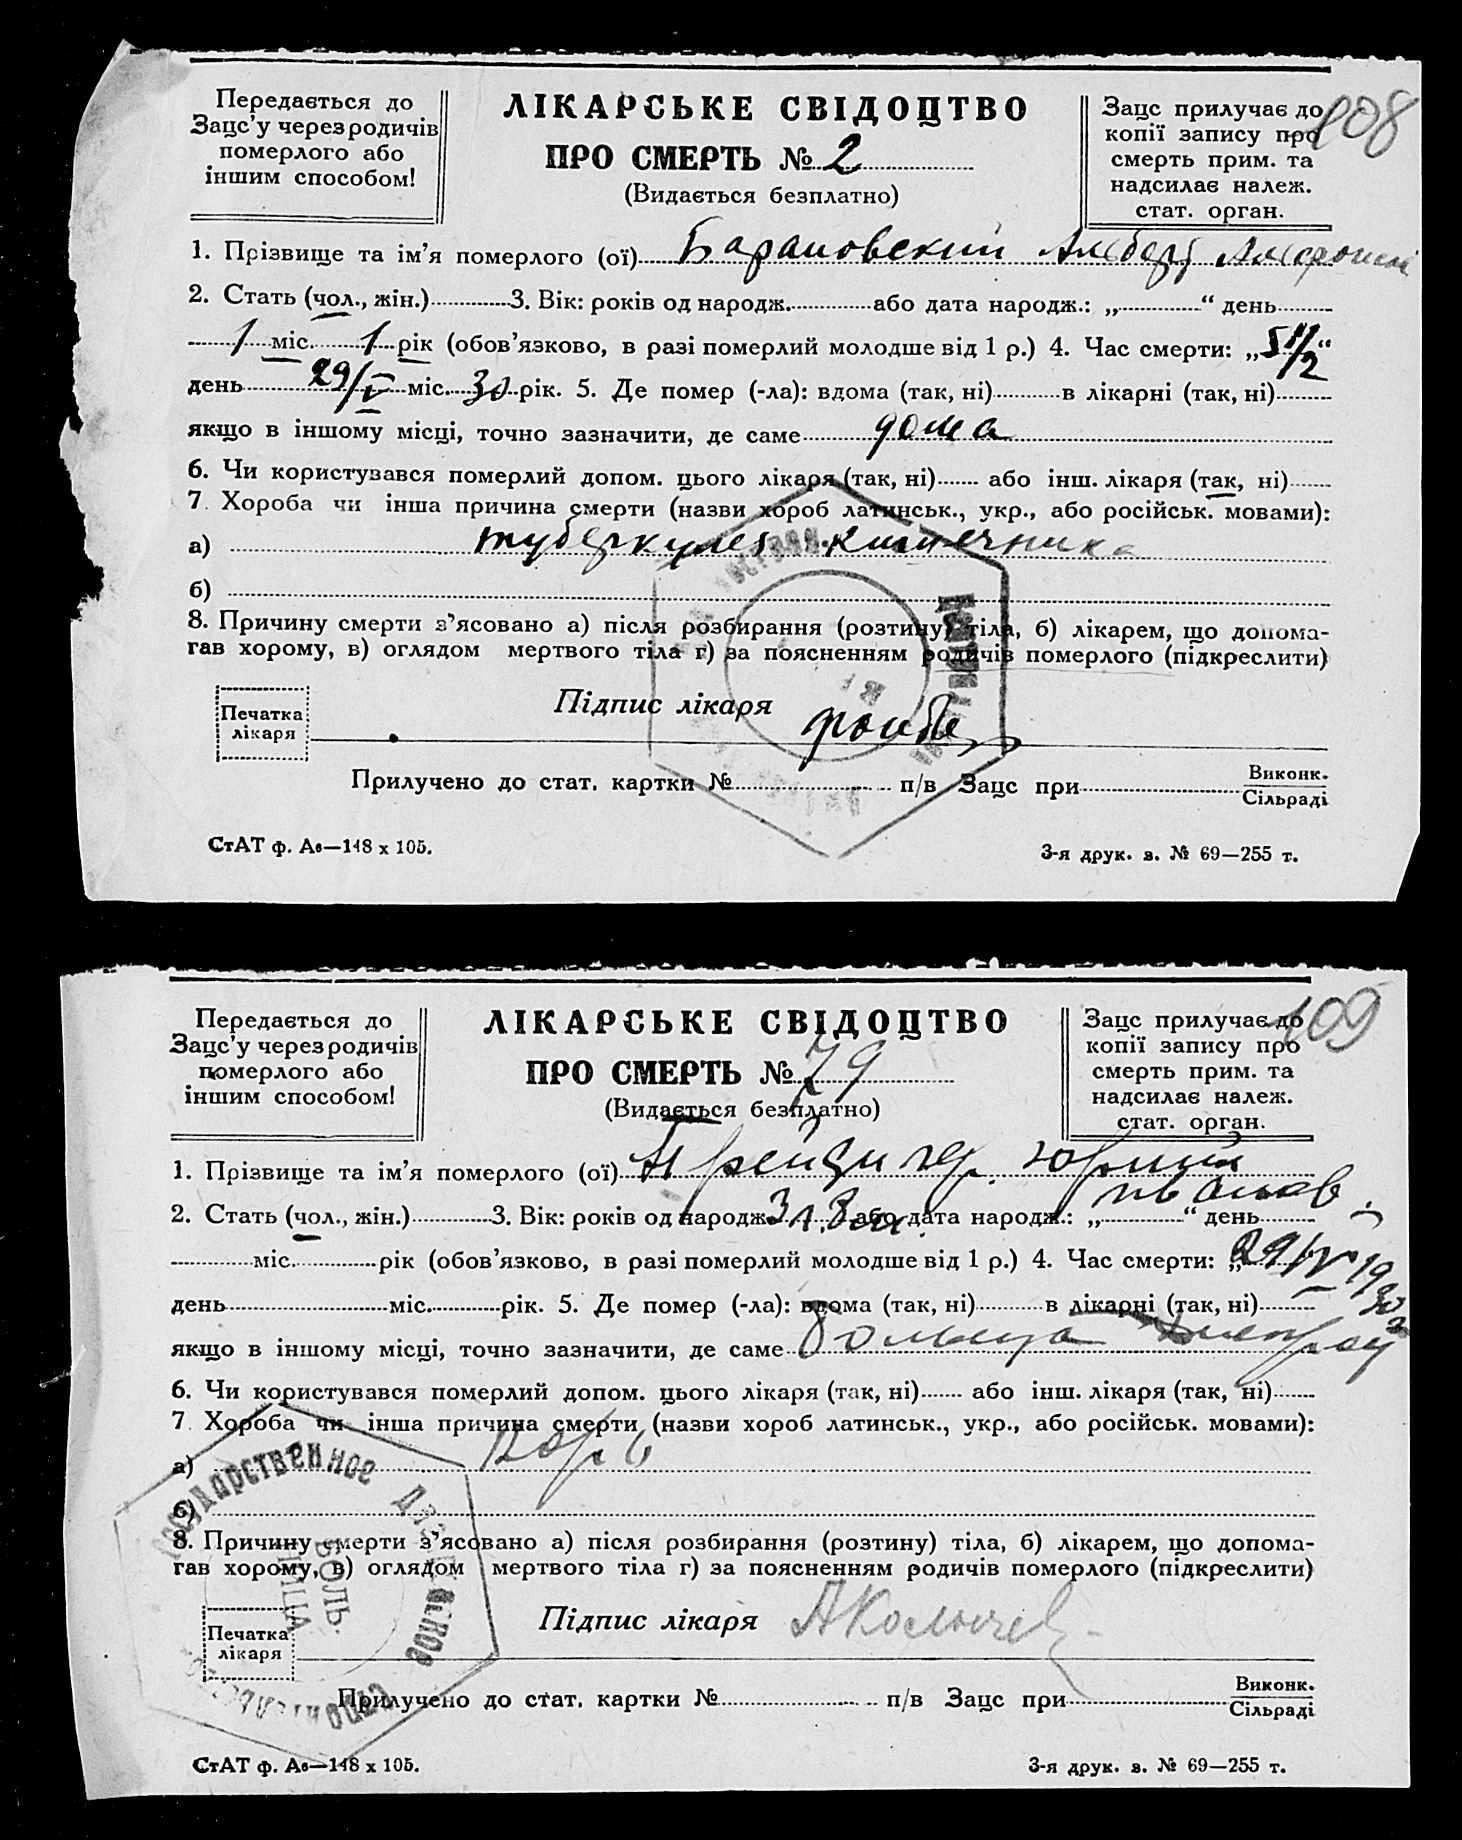 Передається до
Зацс'у через родичів
померлого або
іншим способом!
ЛІКАРСЬКЕ СВІДОЦТВО
ПРО СМЕРТЬ № 2
(Видається безплатно)
Зацс прилучає до
копії запису про
смерть прим. та
надсилає належ.
стат. орган.
108
1. Прізвище та ім'я померлого (ої) Барановский Альберт
2. Стать (чол., жін.) 3. Вік: років од народж. або дата народж.: „ “ день
1 міс. 1 рік (обов'язково, в разі померлий молодше від 1 р.) 4. Час смерти: „5 “
день 29/V міс. 30 рік. 5. Де помер (-ла): вдома (так, ні) в лікарні (так, ні)
якщо в іншому місці, точно зазначити, де саме дома
6. Чи користувався померлий допом. цього лікаря (так, ні) або інш. лікаря (так, ні)
7. Хороба чи інша причина смерти (назви хороб латинськ., укр., або російськ. мовами):
а) туберкулез кишечника
б)
8. Причину смерти з'ясовано а) після розбирання (розтину) тіла, б) лікарем, що допома-
гав хорому, в) оглядом мертвого тіла г) за поясненням родичів померлого (підкреслити)
Печатка
лікаря
Підпис лікаря
Прилучено до стат. картки № п/в Зацс при Виконк.
Сільраді
СтАТ ф. А6—148 x 105.
3-я друк. з. № 69—255 т.
Передається до
Зацс'у через родичів
померлого або
іншим способом!
ЛІКАРСЬКЕ СВІДОЦТВО
ПРО СМЕРТЬ № 79
(Видається безплатно)
Зацс прилучає до
копії запису про
смерть прим. та
надсилає належ.
стат. орган.
109
1. Прізвище та ім'я померлого (ої) Юрий
Иванов.
2. Стать (чол., жін.) 3. Вік: років од народж. 3 л. 8 м. або дата народж.: „ “ день
міс. рік (обов'язково, в разі померлий молодше від 1 р.) 4. Час смерти: „29/V 1930
день міс. рік. 5. Де помер (-ла): вдома (так, ні) в лікарні (так, ні)
якщо в іншому місці, точно зазначити, де саме
6. Чи користувався померлий допом. цього лікаря (так, ні) або інш. лікаря (так, ні)
7. Хороба чи інша причина смерти (назви хороб латинськ., укр., або російськ. мовами):
а) Корь
б)
8. Причину смерти з'ясовано а) після розбирання (розтину) тіла, б) лікарем, що допома-
гав хорому, в) оглядом мертвого тіла г) за поясненням родичів померлого (підкреслити)
ГОСУДАРСТВЕННОЕ
БОЛЬ-
НИЦА
Печатка
лікаря
Підпис лікаря
Прилучено до стат. картки № п/в Зацс при Виконк.
Сільраді
СтАТ ф. А6—148 x 105.
3-я друк. з. № 69—255 т.